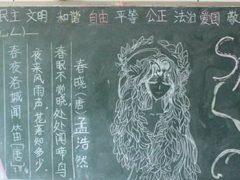 民主 文明 和谐 自由 平等 公正 法治 爱国 敬
春晓(唐)孟浩然
春眠不觉晓,处处闻啼鸟
夜来风雨声,花落知多少。
春夜洛城闻笛(唐